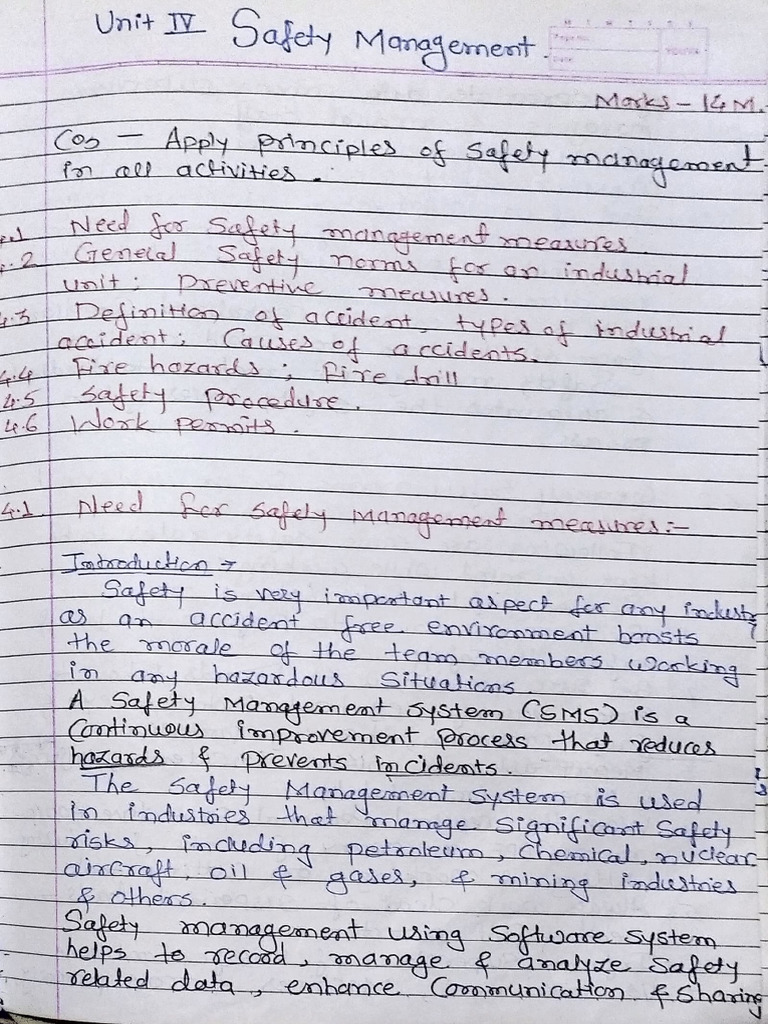 Unit IV Safety Management.
M T W T F S S
Page No.:
Date:
YOUVA
Marks - 14 M.
CO3 - Apply principles of safety management
in all activities.
4.1 Need for safety management measures
4.2 General Safety norms for an industrial
unit; Preventive measures.
4.3 Definition of accident, types of industrial
accident; Causes of accidents.
4.4 Fire hazards; Fire drill
4.5 Safety procedure.
4.6 Work permits.
4.1 Need for safety Management measures:-
Introduction →
Safety is very important aspect for any industry
as an accident free environment boosts
the morale of the team members working
in any hazardous situations.
A Safety Management System (SMS) is a
continuous improvement process that reduces
hazards & prevents incidents.
The Safety Management System is used
in industries that manage significant safety
risks, including petroleum, chemical, nuclear
aircraft, oil & gases, & mining industries
& others.
Safety management using software system
helps to record, manage & analyze safety
related data, enhance communication & sharing